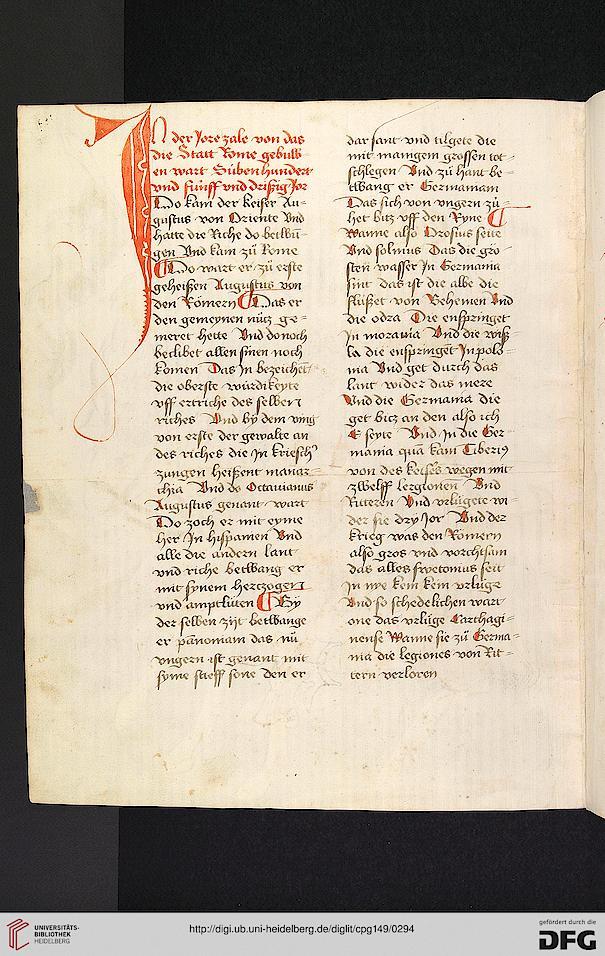 In der Jore zale von das
die Statt Rome gebuw
en wart Süben hundert
vnd fünff vnd drißig Jor
Do kam der keiser Au-
gustus von Oriente Vnd
hatte die Riche do betwun-
gen Vnd kam zü Rome
Do wart er zü erste
geheißen Augustus von
den Römern Das er
den gemeynen nütz ge-
meret hette Vnd donoch
beclibet allen sinen noch
komen Das In bezeichet
die oberste würdikeyte
vff ertriche des selben
riches Vnd by dem ving
von erste der gewalte an
des riches die In kriesch
zungen heißent monar-
chia Vnd do Octauianus
Augustus genant wart
Do zoch er mit eyme
her In hispanien Vnd
alle die andern lant
vnd riche betwang er
mit synem hertzogen
vnd amptlüten By
der selben zijt betwange
er panoniam das nü
vngern ist genant mit
syme stieff sone den er
dar sant vnd tilgete die
mit manigem grossen tot-
schlegen Vnd zü hant be-
twang er Germaniam
Das sich von vngern zü-
het bitz vff den Ryne
Wanne also Orosius seite
Vnd solinus Das die grö-
sten wasser In Germania
sint das ist die albe die
flüßet von Behemen Vnd
die odra Die enspringet
In morauia Vnd die wiß-
la die enspringet In polo-
nia Vnd get durch das
lant wider das mere
Vnd die Germania die
get bitz an den also ich
E seyte Vnd In die Ger-
mania qua kam Tiberius
von des keisers wegen mit
zwelff lergionen Vnd
Ritteren Vnd vrlügete wi-
der sie dry Jor Vnd der
krieg was den Römern
also gros vnd vorchtsam
das alles swetonius seit
In nye kein kein vrlüge
Vnd so schedelichen wart
one das vrlüge Carthagi-
nense Wanne sie zü Germa-
nia die legiones von Rit-
tern verloren
UNIVERSITÄTS-
BIBLIOTHEK
HEIDELBERG
http://digi.ub.uni-heidelberg.de/diglit/cpg149/0294
gefördert durch die
DFG